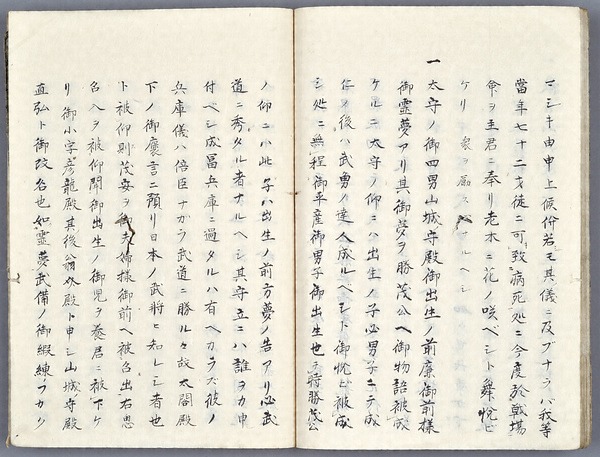 マシキ由申上候併若又其儀ニ及ブナラハ我等
當年七十二才徒ニ可致病死処ニ今度於戦場
命ヲ主君ニ奉リ老木ニ花ノ咲ベシト舞悦ビ
ケリ 衆ヲ励スナルヘシ
一
太守ノ御四男山城守殿御出生ノ前廉御前様
御霊夢アリ其御夢ヲ勝茂公ヘ御物語被成
ケルニ太守ノ仰ニハ出生ノ子必男子ニテ成
仁ノ後ハ武勇ノ達人成ルベシト御悦ビ被成
シ処ニ無程御平産御男子御出生也テ時勝茂公
ノ仰ニハ此子ハ出生ノ前方夢ノ告アリ必武
道ニ秀タル者ナルヘシ其守立ニハ誰ヲカ申
付ベシ成冨兵庫ニ過タルハ有ヘカラズ彼ノ
兵庫儀ハ倍臣ナカラ武道ニ勝ルヽ故太閤殿
下ノ御褒言ニ預リ日本ノ武将ト知レシ者也
ト被仰則茂安ヲ御夫婦様御前ヘ被召出右思
召入ヲ被仰聞御出生ノ御児ヲ養君ニ被下ケ
リ御小字彦龍殿其後翁助殿ト申シ山城守殿
直弘ト御改名也如霊夢武備ノ御鍛練フカク